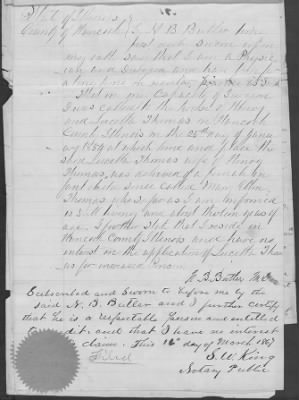 State of Illinois
County of Hancock } I, N. B. Butler being
first duly sworn upon
my oath say that I am a Physic
ian and Surgeon and
That in my Capacity of Surgeon
I was called to the house of Henry
and Lucette Thomas in Hancock
County Illinois on the 25th day of Janu
ary 1854 at which time and place the
said Lucette Thomas wife of Henry
Thomas, was delivered of a female in
fant child since called Mary Ellen
Thomas who so far as I am informed
is still living and about thirteen years of
age. I further state that I reside in
Hancock County Illinois and have no
interest in the application of Lucette Thom
as for increased Pension.
N. B. Butler M.D.
Subscribed and Sworn to before me by the
said N. B. Butler and I further certify
that he is a respectable person and entitled
to credit, and that I have no interest
claim. This 16th day of March 1867
S. W. King
Notary Public